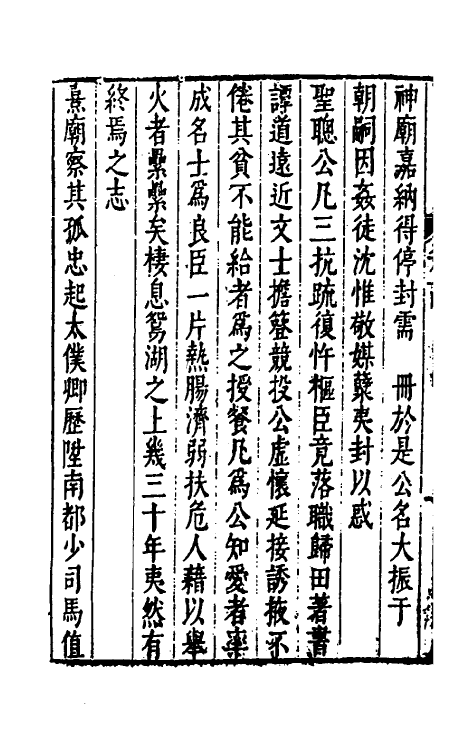 神廟嘉納得停封需　冊於是公名大振于
朝嗣因姦徒沈惟敬媒櫱夷封以惑
聖聰公凡三抗疏復忤樞臣竟落職歸田著書
譚道遠近文士擔簦競投公虛懷延接誘掖不
倦其貧不能給者為之授餐凡為公知愛者率
成名士為良臣一片熱腸濟弱扶危人藉以舉
火者纍纍矣棲息鴛湖之上幾三十年夷然有
終焉之志
熹廟察其孤忠起太僕卿歷陞南都少司馬值